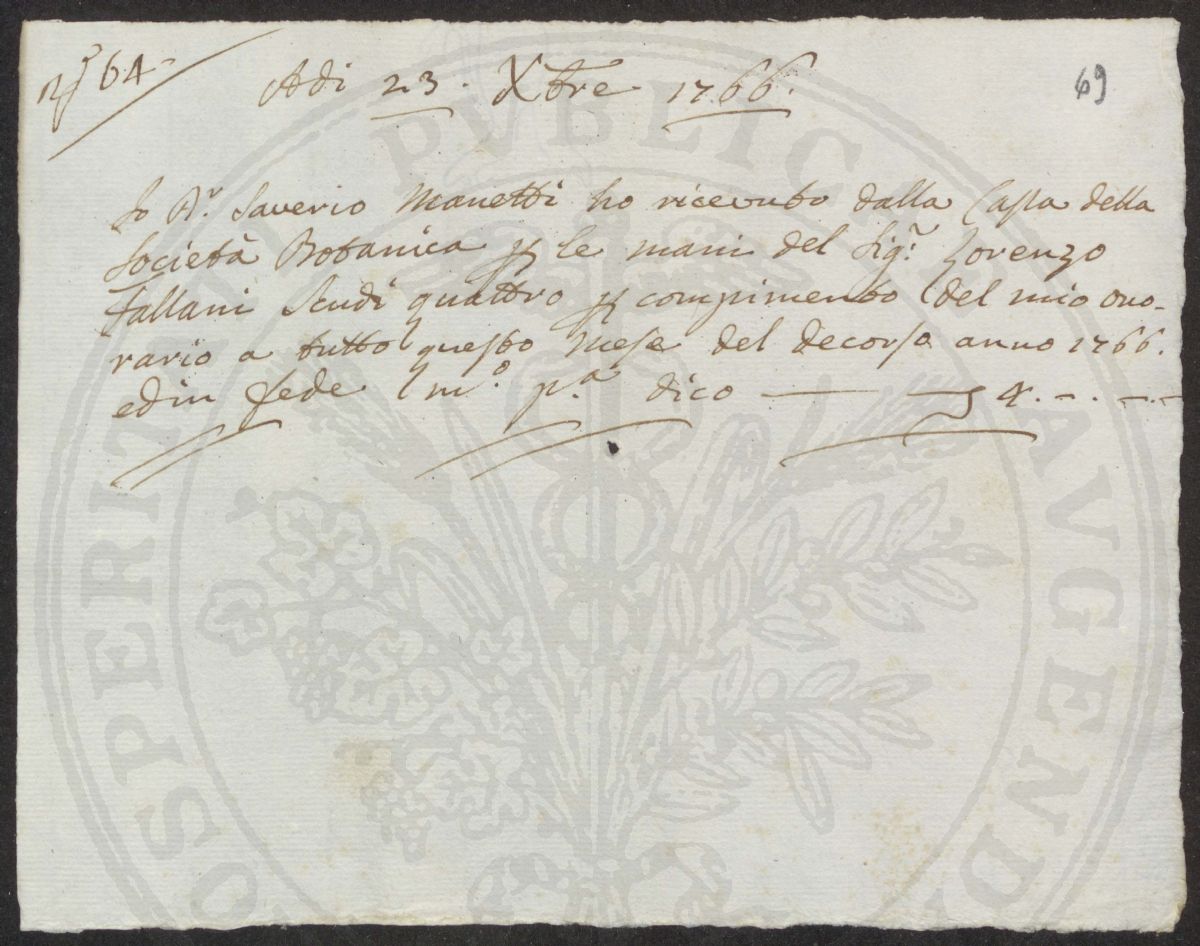 N.º 64
Adi 23. Xbre 1766.
69
Io D.r Saverio Manetti ho ricevuto dalla Cassa della
Società Botanica p le mani del Sig.r Lorenzo
Fallani Scudi quattro p compimento del mio ono-
rario a tutto questo mese del decorso anno 1766.
ed in fede m.o p.a dico — 4. -. -.-
PROSPERITATI PVBLICAE AVGENDAE